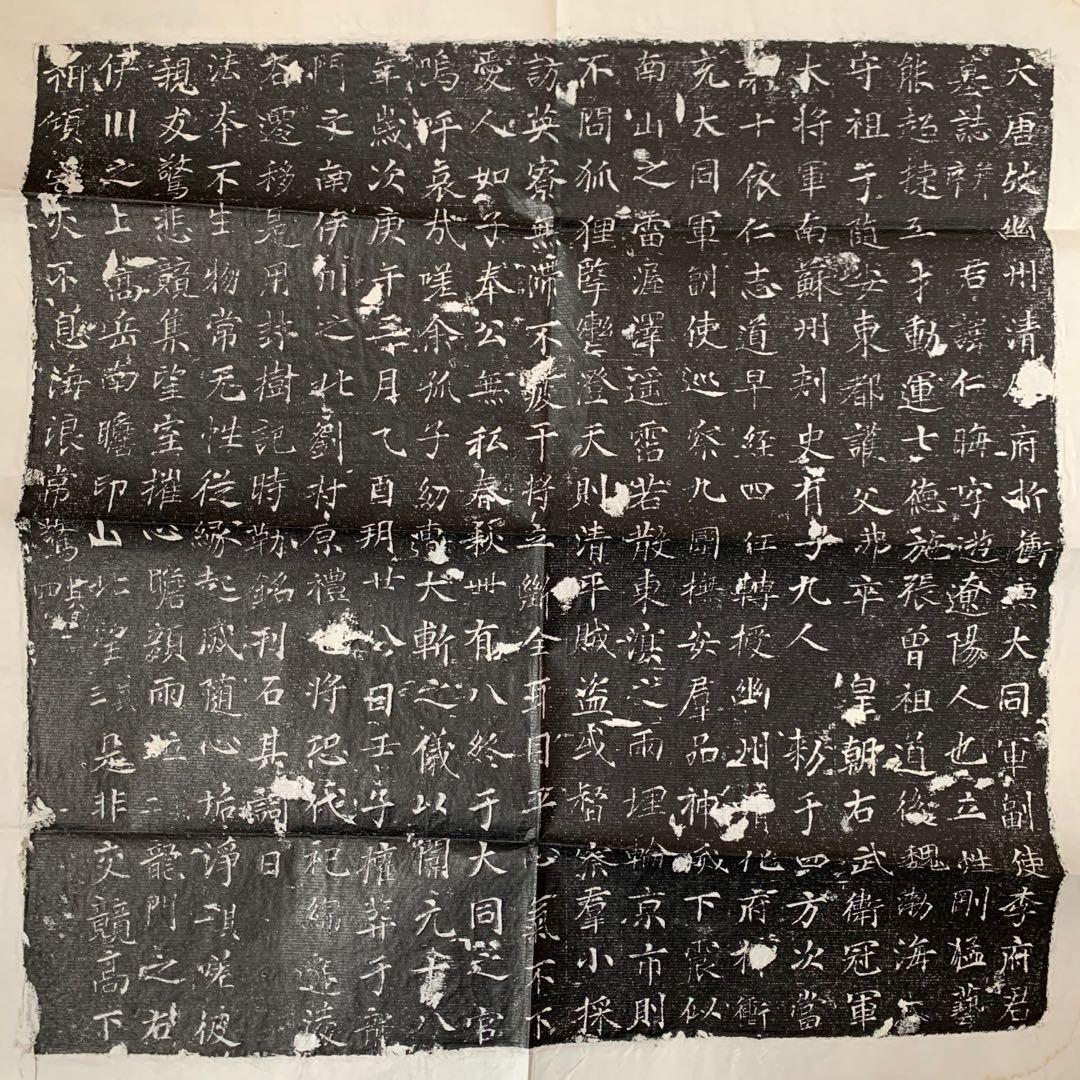 大唐故幽州清化府折衝兼大同軍副使李府君
墓誌并 君諱仁晦字遊遼陽人也立性剛猛藝
能超捷五才動運七德施張曾祖道後魏渤海太
守祖于隨安東都護父沛卒 皇朝右武衛冠軍
大將軍南蘇州刺史有子九人 勑于四方次當
十依仁志道早經四任轉授幽州清化府折衝
充大同軍副使巡察九團撫安羣品神威下震似
南山之雷渥澤遥霑若散東溟之雨埋輪京市則
不問狐狸擥轡澄天則清平賊盜或督察羣小採
訪英寮無滯不疲干將立斷全耳目平心氣不下
愛人如子奉公無私春秋卌有八終于大同之官
嗚呼哀哉嗟余孤子幼 犬斬之儀以開元十八
年歲次庚午三月乙酉朔廿八日壬子權葬于龍
門之南伊川之北劉村原禮也將恐代祀綿邈陵
谷遷移是用封樹記時勒銘刊石其詞曰
法本不生物常无性從緣起滅隨心垢淨 嗟彼
親友驚悲競集望室摧心瞻顏雨泣二龍門之右
伊川之上高岳南瞻卬山北望三是非交競高下
相傾 炎不息海浪常驚其四